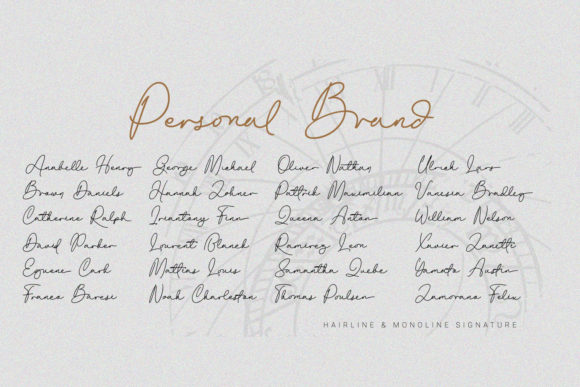 Personal Brand
Annabelle Henry George Michael Oliver Nathan Ulrich Lars
Brown Daniels Hannah Zohner Pattrik Maximilian Vanesia Bradley
Catherine Ralph Iriantany Finn Queena Antan William Nelson
David Parker Laurent Blanck Ramirez Leon Xavier Zanetti
Eugene Cark Mattias Louis Samantha Quebe Yamota Austin
Franca Baresi Noah Charleston Thomas Poulsen Zamorano Felix
HAIRLINE & MONOLINE SIGNATURE